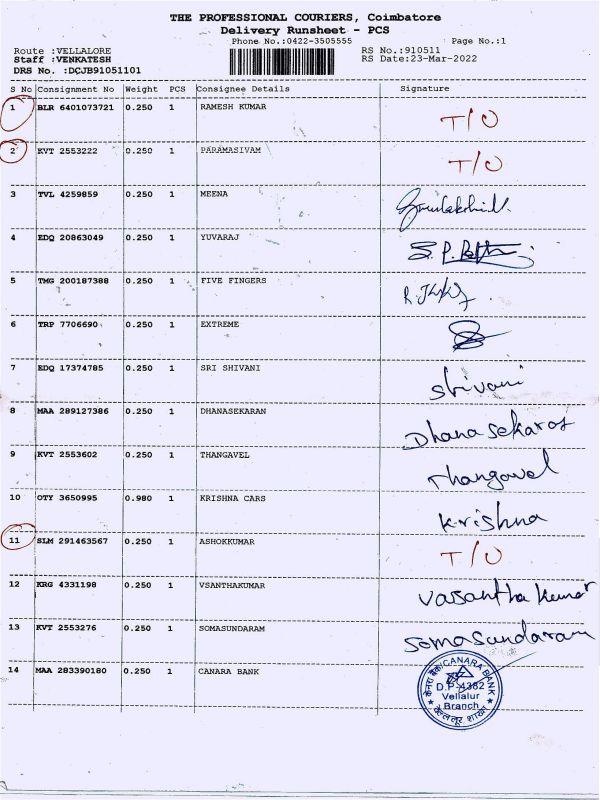 THE PROFESSIONAL COURIERS, Coimbatore
Delivery Runsheet - PCS
Phone No.:0422-3505555 Page No.:1
Route :VELLALORE RS No.:910511
Staff :VENKATESH RS Date:23-Mar-2022
DRS No. :DCJB91051101
S No Consignment No Weight PCS Consignee Details Signature
1 BLR 6401073721 0.250 1 RAMESH KUMAR T/O
2 KVT 2553222 0.250 1 PARAMASIVAM T/O
3 TVL 4259859 0.250 1 MEENA
4 EDQ 20863049 0.250 1 YUVARAJ
5 TMG 200187388 0.250 1 FIVE FINGERS
6 TRP 7706690 0.250 1 EXTREME
7 EDQ 17374785 0.250 1 SRI SHIVANI Shivani
8 MAA 289127386 0.250 1 DHANASEKARAN
9 KVT 2553602 0.250 1 THANGAVEL Thangavel
10 OTY 3650995 0.980 1 KRISHNA CARS Krishna
11 SLM 291463567 0.250 1 ASHOKKUMAR T/O
12 KRG 4331198 0.250 1 VSANTHAKUMAR Vasantha Kumar
13 KVT 2553276 0.250 1 SOMASUNDARAM Somasundaram
14 MAA 283390180 0.250 1 CANARA BANK
केनरा बैंक/CANARA BANK
D.P-4382
Vellalur
Branch